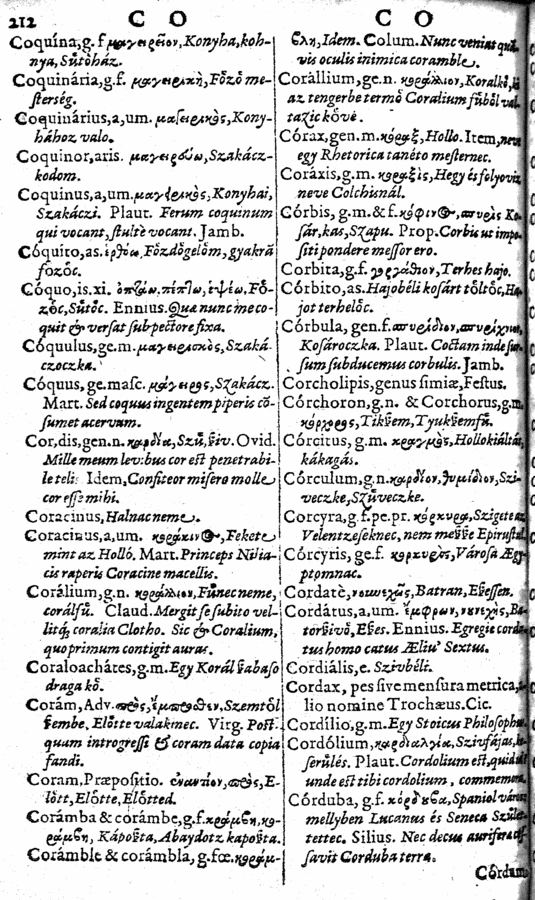 212 C O C O
Coquína, g. f μαγειρεῖον, Konyha, koh-
nya, Sűtőház.
Coquinária, g. f. μαγειρικὴ, Főző me-
sterség.
Coquinárius, a, um. μαγειρικὸς, Kony-
hához valo.
Coquinor, aris. μαγειρεύω, Szakácz-
kodom.
Coquínus, a, um. μαγειρικὸς, Konyhai,
Szakáczi. Plaut. Ferum coquinum
qui vocant, stultè vocant. Jamb.
Cóquito, as. Fözdőgelőm, gyakrā
fozőc.
Cóquo, is. xi. ὀπτάω, πέπτω, ἑψέω, Fő-
zőc, Sűtőc. Ennius. Quæ nunc me co-
quit & versat sub pectore fixa.
Cóquulus, ge. m. μαγειρικὸς, Szaká
czoczka.
Cóquus, ge. masc. μάγειρος, Szakácz.
Mart. Sed coquus ingentem piperis cō-
sumet acervum.
Cor, dis, gen. n. καρδία, Szű, Ovid.
Mille meum levibus cor est penetrabi-
le teli: Idem, Confiteor misero molle
cor esse mihi.
Coracinus, Halnac neme.
Coracinus, a, um. Fekete
mint az Holló. Mart. Princeps Nilia-
cis raperis Coracine macellis.
Corálium, g. n. κοράλλιον, Fűnec neme,
corálfű. Claud. Mergit se subito vel-
litq; coralia Clotho. Sic & Coralium,
quo primum contigit auras.
Coraloachátes, g. m. Egy Korál
draga kő.
Corám, Adv. Szemtől
fembe, Elŏtte valakinec. Virg. Post-
quam introgressi & coram data copia
fandi.
Coram, Præpositio. ἐναντίον, E-
lŏtt, Elŏtte, Elŏtted.
Corámba & corámbe, g. f. κράμβη, κο-
ράμβη, Káposta, Abaydotz kaposta.
Corámble & corámbla, g. fœ. κοράμ-
βλη, Idem. Colum. Nunc veniat
vis oculis inimica coramble.
Corállium, ge. n. κοράλλιον, Koralkő,
az tengerbe termő Coralium fűből
tazic kővé.
Córax, gen. m. κόραξ, Hollo. Item, neve
egy Rhetorica tanéto mesternec.
Coráxis, g. m. κοραξὶς, Hegy és folyoviz
neve Colchisnál.
Córbis, g. m. & f. κόφινος, Ko-
sár, kas, Szapu. Prop. Corbis ut impo-
siti pondere messor ero.
Corbita, g. f. Terhes hajo.
Córbito, as. Hajobéli kosárt tőltőc, Ha-
jot terhelőc.
Córbula, gen. f.
Kosároczka. Plaut. Coctam inde sur-
sum subducemus corbulis. Jamb.
Corcholipis, genus simiæ, Festus.
Córchoron, g. n. & Corchorus, g. m.
κόρχορος, Tikszem, Tyukszemfű.
Córcitus, g. m. κραγμὸς, Hollokiáltás,
kákagás.
Córculum, g. n. καρδίον, θυμίδιον, Szi-
veczke, Szűveczke.
Corcyra, g. f. pe. pr. κόρκυρα, Sziget az
Velentzeseknec, nem messze
Córcyris, ge. f. κορκυρὶς, Városa Ægy-
ptomnac.
Cordatè, νουνεχῶς, Batran, Eszessen.
Cordátus, a, um. ἔμφρων, νουνεχὴς, Ba-
torszivő, Eszes. Ennius. Egregiè corda-
tus homo catus Æliu' Sextus.
Cordiális, e. Szivbéli.
Cordax, pes sive mensura metrica, a-
lio nomine Trochæus. Cic.
Cordílio, g. m. Egy Stoicus Philosophus
Cordólium, καρδιαλγία, Szivfájas,
serűlés. Plaut. Cordolium est, quid
unde est tibi cordolium, commemora.
Córduba, g. f. κόρδυβα, Spaniol város
mellyben Lucanus és Seneca Szűlet-
tettec. Silius. Nec decus auriferæ ces-
savit Corduba terræ.
Córdum